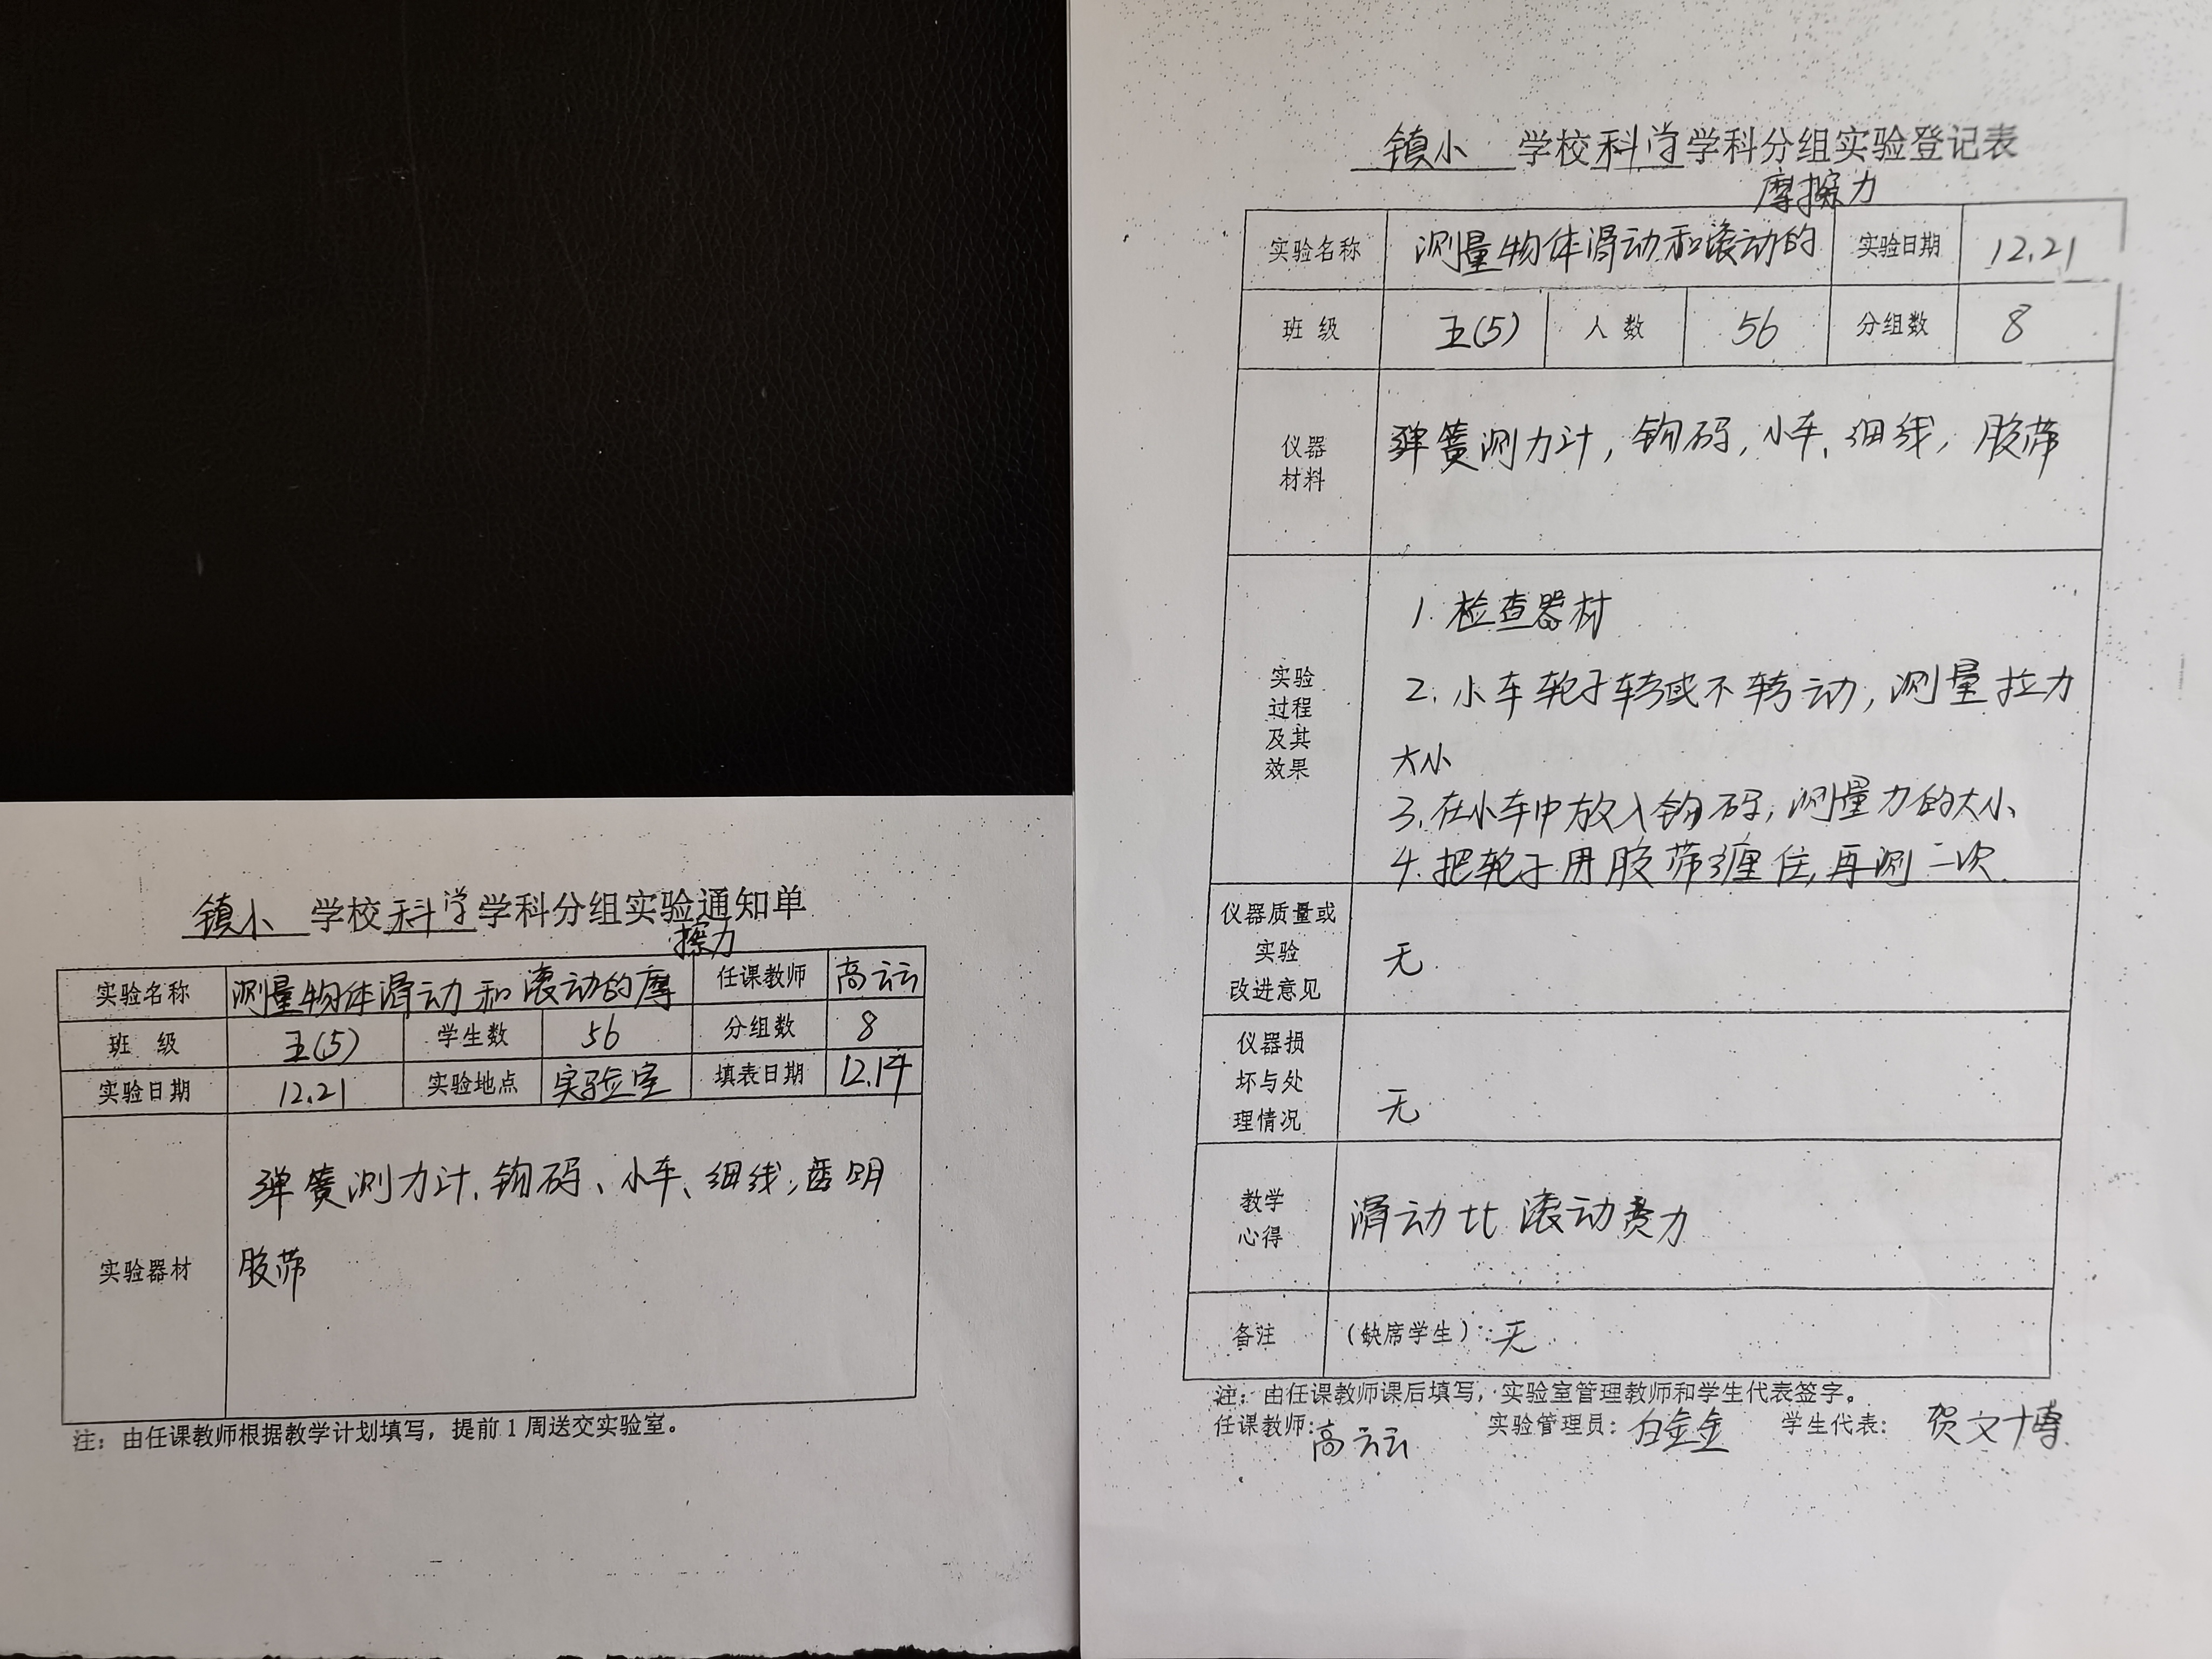 镇小 学校科学学科分组实验通知单
擦力
实验名称 测量物体滑动和滚动的摩 任课教师 高云云
班 级 五(5) 学生数 56 分组数 8
实验日期 12.21 实验地点 实验室 填表日期 12.14
实验器材 弹簧测力计、钩码、小车、细线,透明
胶带
注：由任课教师根据教学计划填写，提前1周送交实验室。
镇小 学校科学学科分组实验登记表
摩擦力
实验名称 测量物体滑动和滚动的 实验日期 12.21
班 级 五(5) 人 数 56 分组数 8
仪器
材料
弹簧测力计,钩码,小车、细线,胶带
实验
过程
及其
效果
1.检查器材
2.小车轮子转或不转动,测量拉力
大小
3.在小车中放入钩码,测量力的大小
4.把轮子用胶带缠住,再测一次.
仪器质量或
实验
改进意见
无
仪器损
坏与处
理情况
无
教学
心得
滑动比滚动费力
备注 （缺席学生）：无
注：由任课教师课后填写，实验室管理教师和学生代表签字。
任课教师：高云云 实验管理员：白金金 学生代表：贺文博